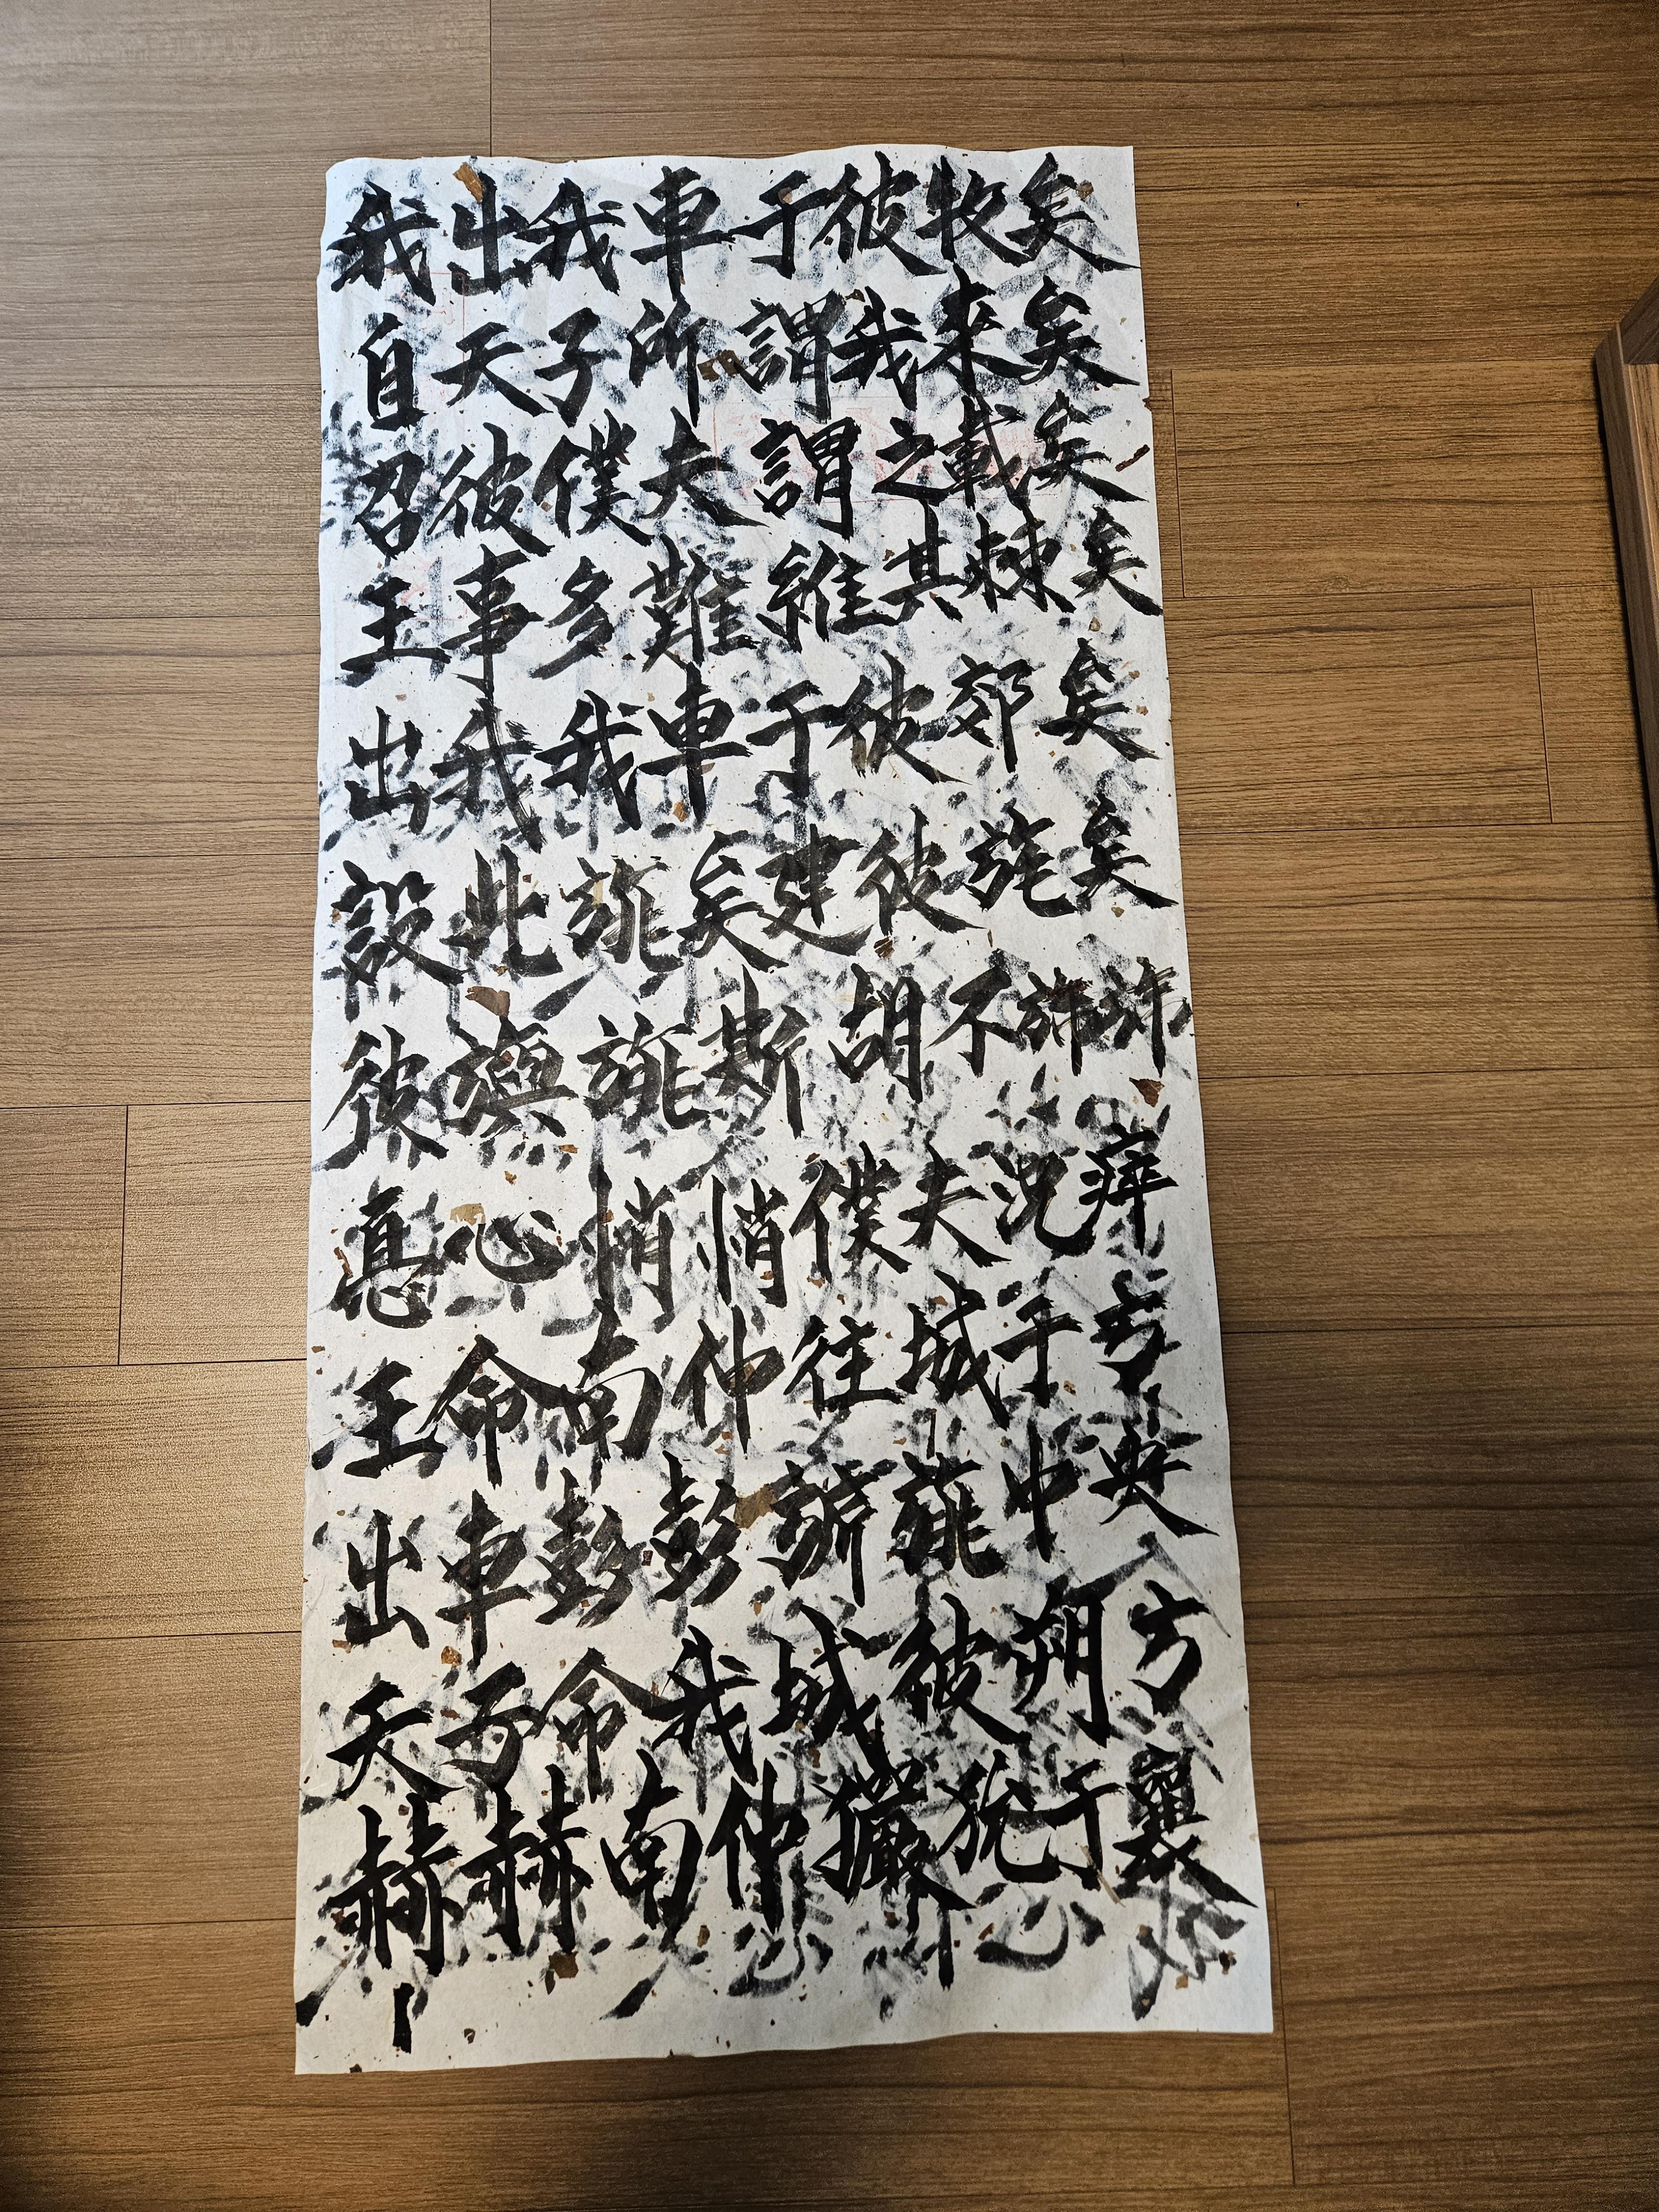 我出我車于彼牧矣
自天子所謂我來矣
召彼僕夫謂之載矣
王事多難維其棘矣
出我我車于彼郊矣
設此旐矣建彼旄矣
彼旟旐斯胡不旆旆
憂心悄悄僕夫況瘁
王命南仲往城于方
出車彭彭旂旐中央
天子命我城彼朔方
赫赫南仲玁狁于襄